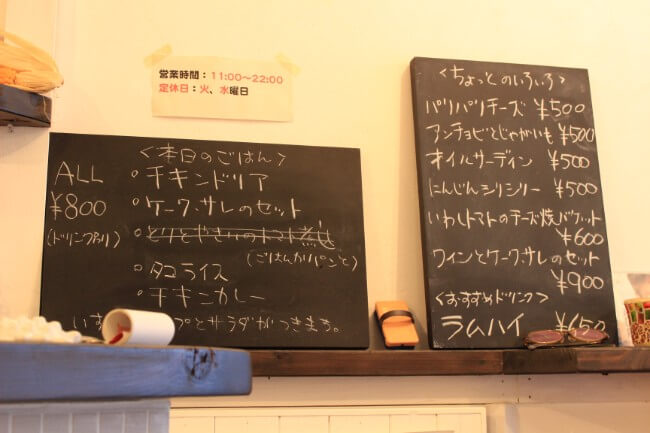 営業時間：11:00～22:00
定休日：火、水曜日
〈本日のごはん〉
ALL
¥800
(ドリンク付)
・チキンドリア
・ケーク・サレのセット
・とりとやさいのトマト煮
(ごはんかパンと)
・タコライス
・チキンカレー
プとサラダがつきます。
〈ちょっとのいろいろ〉
パリパリチーズ ¥500
アンチョビとじゃがいも ¥500
オイルサーディン ¥500
にんじんシリシリー ¥500
いわしトマトのチーズ焼バケット
¥600
ワインとケーク・サレのセット
¥900
〈おすすめドリンク〉
ラムハイ ¥650